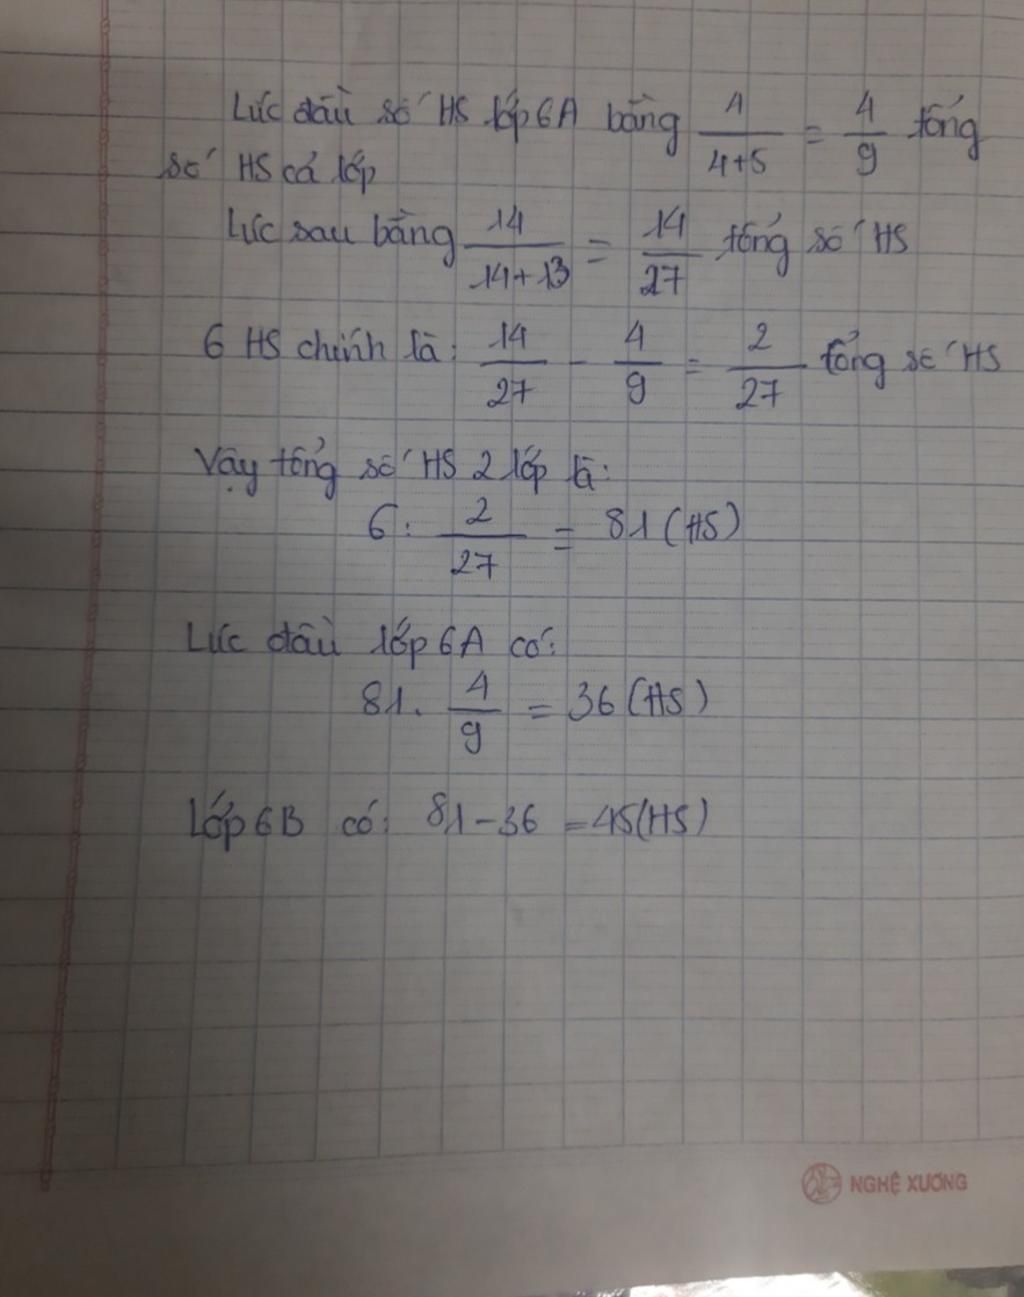 Lức đầu số HS lớp 6A bằng 4/(4+5) = 4/9 tổng
số HS cả lớp
Lức sau bằng 14/(14+13) = 14/27 tổng số HS
6 HS chính là: 14/27 - 4/9 = 2/27 tổng số HS
Vậy tổng số HS 2 lớp là:
6 : 2/27 = 81 (HS)
Lức đầu lớp 6A có:
81 . 4/9 = 36 (HS)
Lớp 6B có: 81 - 36 = 45 (HS)
NGHỆ XƯƠNG